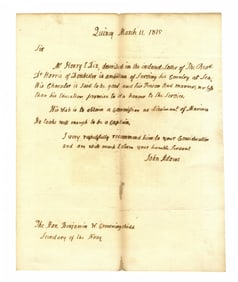 Quincy March 11. 1815
Sir
Mr Henry E Dix, described in the inclosed Letter of Dr Thad
Harris of Dorchester is ambitious of Serving his Country at Sea,
His Character is Said to be good and his Person And manners, no less
than his Education promise to do honour to the Service.
His wish is to obtain a Commission as Lieutenant of Marines
He looks well enough to be a Captain,
I very respectfully recommend him to your Consideration
and am with much Esteem your humble Servant
John Adams
The Hon. Benjamin W. Crowninshield
Secretary of the Navy